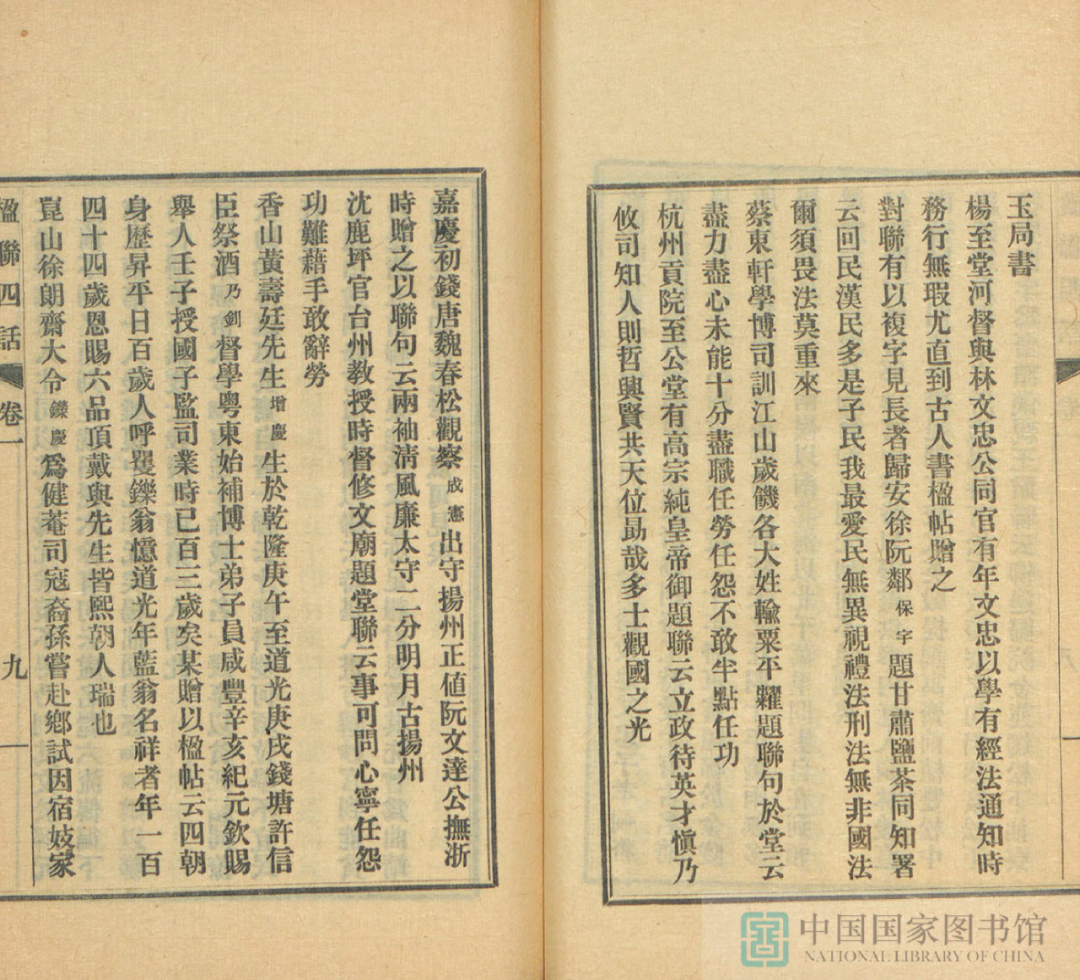 玉局書
楊至堂河督與林文忠公同官有年文忠以學有經法通知時
務行無瑕尤直到古人書楹帖贈之
對聯有以複字見長者歸安徐阮鄰保字題甘肅鹽茶同知署
云回民漢民多是子民我最愛民無異視禮法刑法無非國法
爾須畏法莫重來
蔡東軒學博司訓江山歲饑各大姓輸粟平糶題聯句於堂云
盡力盡心未能十分盡職任勞任怨不敢半點任功
杭州貢院至公堂有高宗純皇帝御題聯云立政待英才慎乃
攸司知人則哲興賢共天位勗哉多士觀國之光
嘉慶初錢唐魏春松觀察成憲出守揚州正値阮文達公撫浙
時贈之以聯句云兩袖淸風廉太守二分明月古揚州
沈鹿坪官台州教授時督修文廟題堂聯云事可問心寧任怨
功難藉手敢辭勞
香山黃壽廷先生增慶生於乾隆庚午至道光庚戌錢塘許信
臣祭酒乃釗督學粵東始補博士弟子員咸豐辛亥紀元欽賜
舉人壬子授國子監司業時已百三歲矣某贈以楹帖云四朝
身歷昇平日百歲人呼矍鑠翁憶道光年藍翁名祥者年一百
四十四歲恩賜六品頂戴與先生皆熙朝人瑞也
崑山徐朗齋大令鑅慶爲健菴司寇裔孫嘗赴鄕試因宿妓家
楹聯四話 卷一 九
中国国家图书馆
NATIONAL LIBRARY OF CHINA